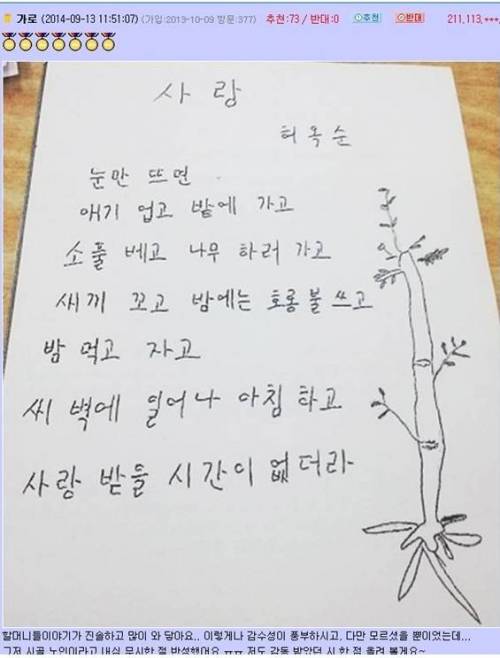 가로 (2014-09-13 11:51:07) (가입:2013-10-09 방문:377) 추천:73 / 반대:0 추천 반대 211,113,***,
사랑
허옥순
눈만 뜨면
애기 업고 밭에 가고
소풀 베고 나무 하러 가고
새끼 꼬고 밤에는 호롱불 쓰고
밤 먹고 자고
씨벽에 일어나 아침 하고
사랑 받을 시간이 없더라
할머니들이야기가 진솔하고 많이 와 닿아요.. 이렇게나 감수성이 풍부하시고, 다만 모르셨을 뿐이었는데...
그저 시골 노인이라고 내심 무시한 절 반성했어요 ㅠㅠ 저도 감동 받았던 시 한 점 올려 볼게요~